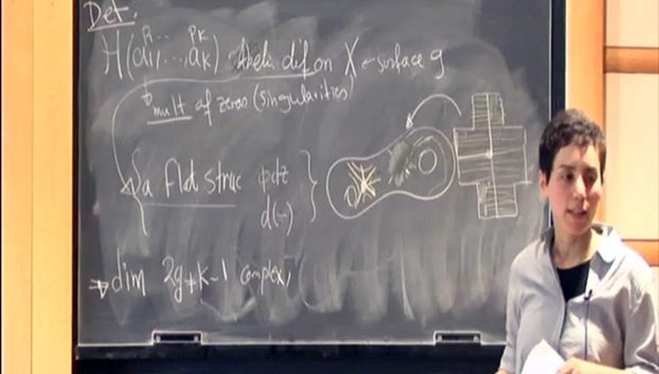 Def.
p₁ ... pₖ
H(a₁, ..., aₖ) Abelian dif on X – surface g
mult of zeros (singularities)
a flat struc φdz
d(–)
dim 2g+k-1 complex,